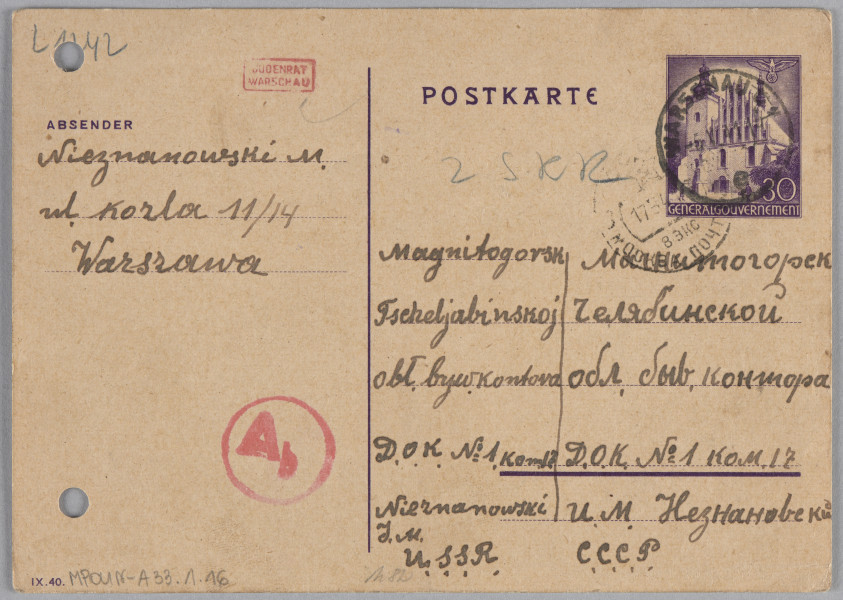 JUDENRAT
WARSCHAU
POSTKARTE
ABSENDER
Nieznanowski M.
ul. Kozla 11/14
Warszawa
2 SKR
30
GENERALGOUVERNEMENT
Magnitogorsk
Tscheljabinskoj
obł. byw. kontova
D.O.K. № 1, Kom 17
Nieznanowski
J.M.
U.SSR.
Магнитогорск
Челябинской
обл. быв. контора
Д.О.К. № 1 ком. 17
И. М. Незнановский
С.С.С.Р.
Ab
IX. 40.
MPOLIN-A33.1.16